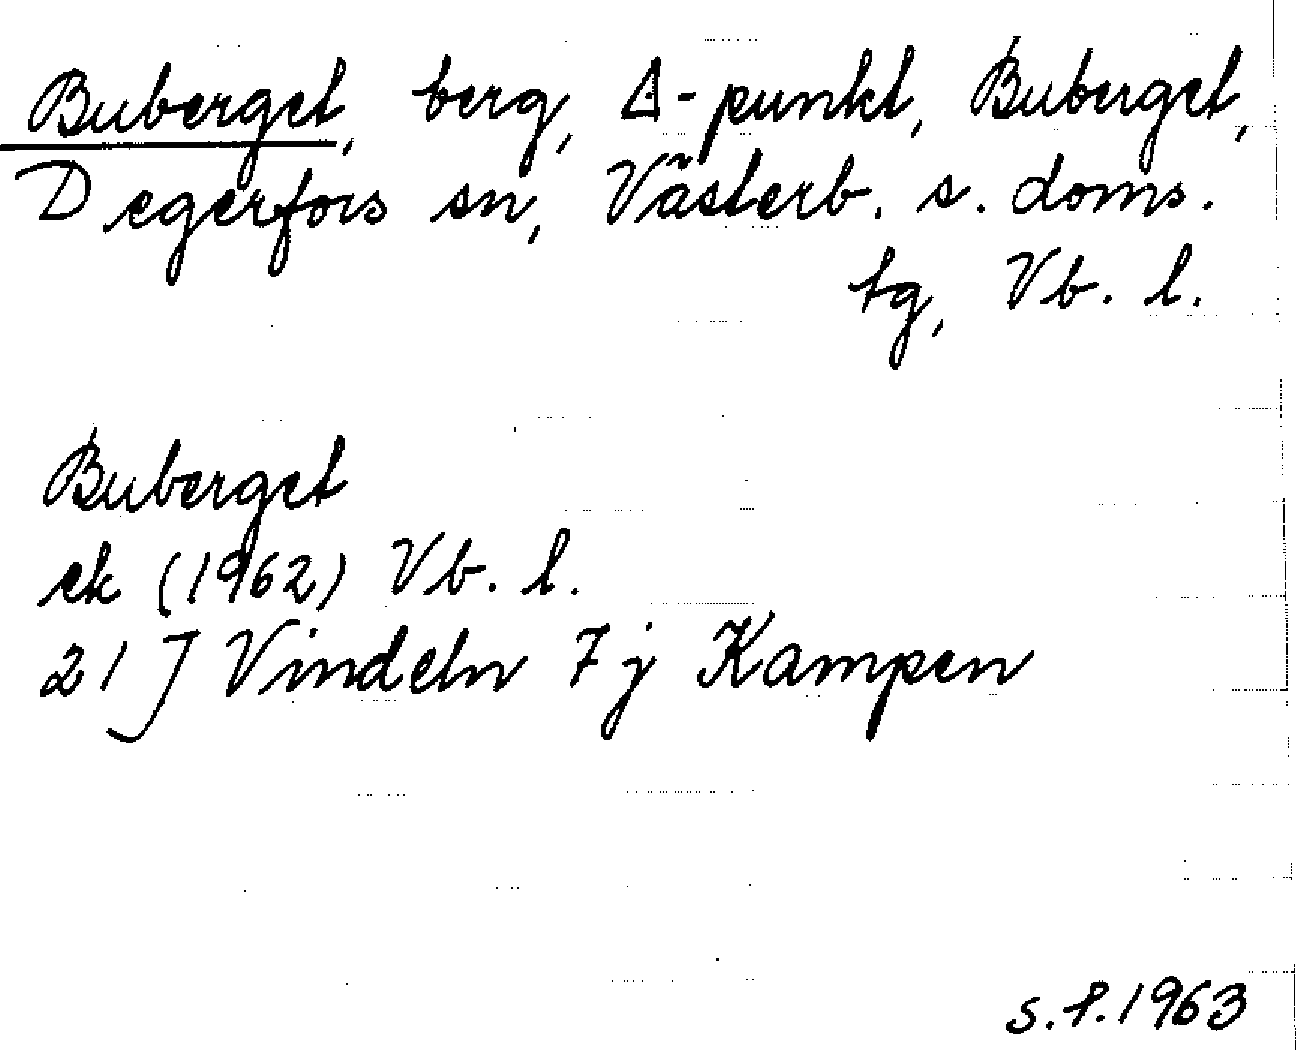 Buberget, berg, Δ-punkt, Buberget,
Degerfors sn, Västerb. s. doms.
tg, Vb. l.
Buberget
ek (1962) Vb. l.
21 J Vindeln 7 j Kampen
s.f. 1963